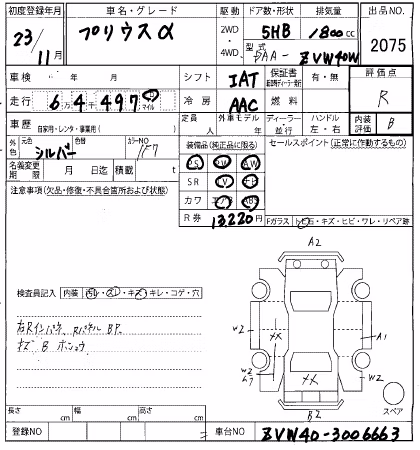 初度登録年月 車名・グレード 駆動 ドア数・形状 排気量 出品NO.
23年 11月 プリウスα 2WD・4WD 5HB 1800cc 2075
型式 DAA-ZVW40W
車検 年 月 シフト IAT 保証書 有・無 評価点
走行 6万4497 km マイル 冷房 AAC 燃料 R
車歴 自家用・レンタ・事業用( ) 定員 人 外車モデル 年 ディーラー 並行 ハンドル 左・右 内装評価 B
外色 元色 シルバー 色替 カラーNO 1F7 装備品(純正品に限る) セールスポイント(正常に作動するもの)
名義変更期限 月 日迄 積載 t PS PW AW
注意事項(欠品・修復・不具合箇所および状態) SR ナビ
カワ エアB ABS
R券 13,220円 Fガラス トビ石・キズ・ヒビ・ワレ・リペア跡
A2
検査員記入 内装 キレ・コゲ・穴
右Rインパネ Rパネル BP
キズ B ホシュウ
W2 メメ A1
W2 メメ W2
B2
スペア
長さ cm 幅 cm 高さ cm
登録NO 車台NO ZVW40-3006663